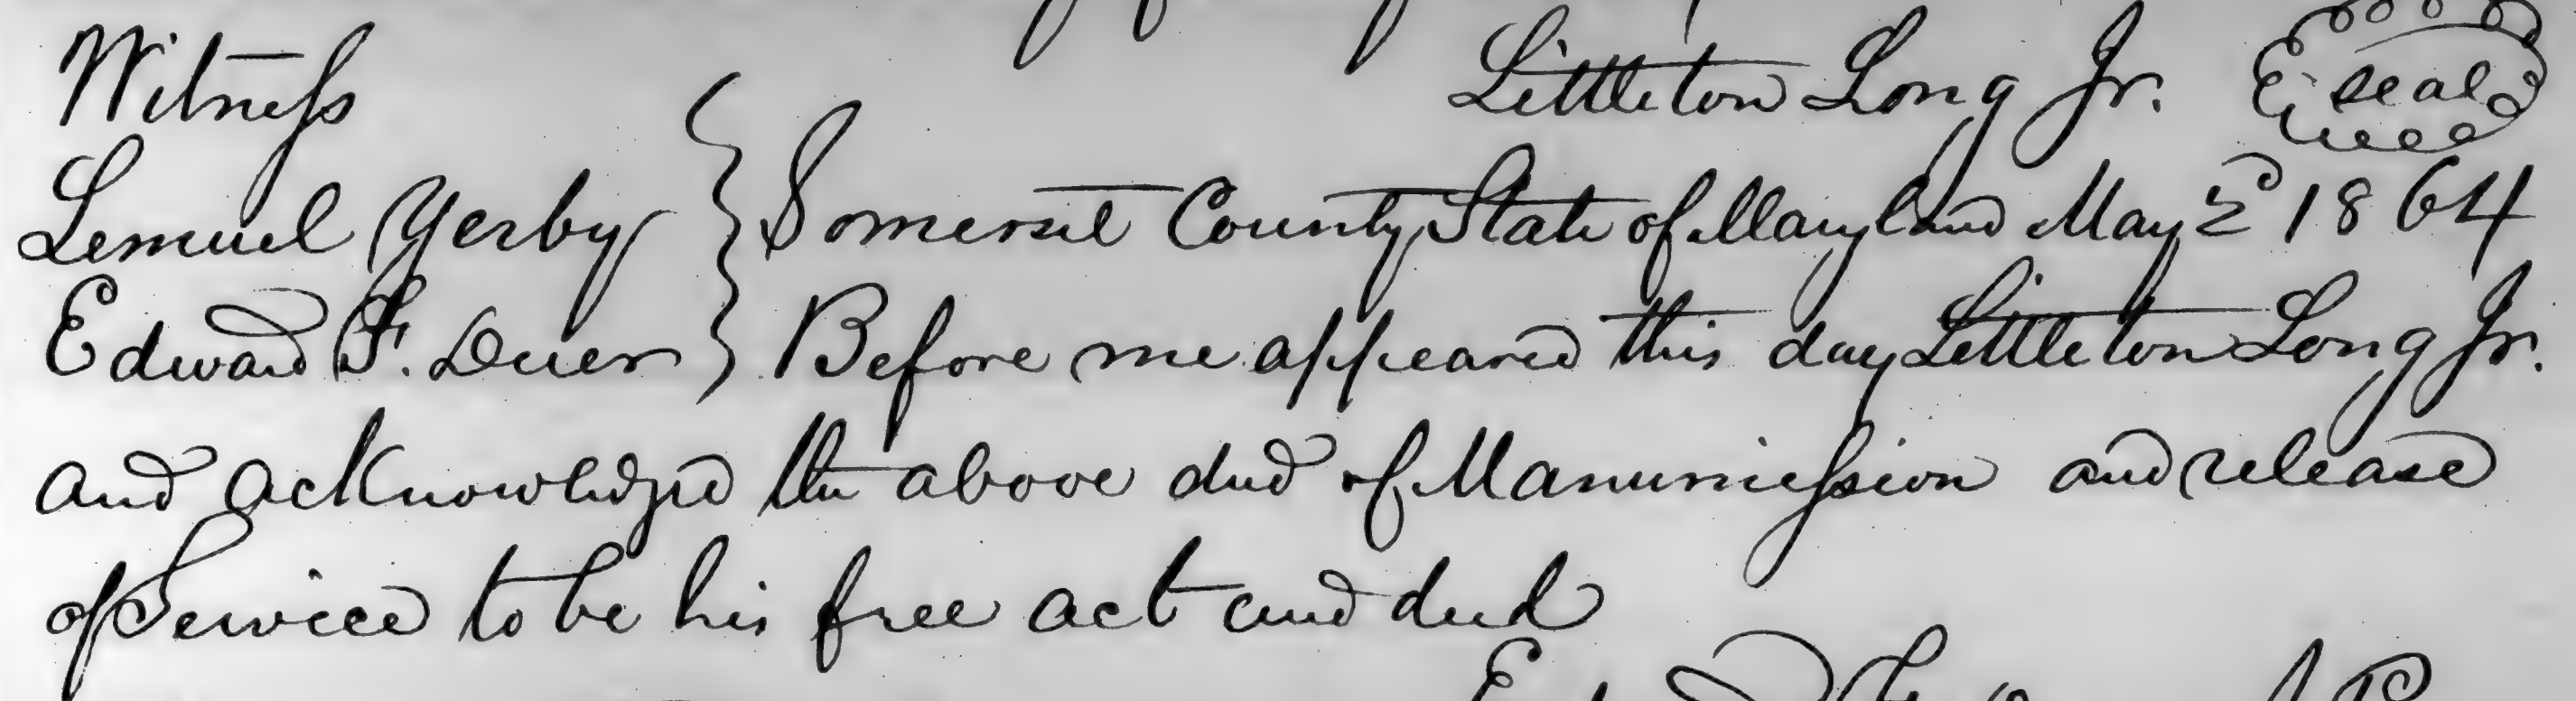 Witness
Littleton Long Jr. seal
Lemuel Yerby
Somerset County State of Maryland May 2d 1864
Edward F. Duer
Before me appeared this day Littleton Long Jr.
and acknowledged the above deed of Manumission and release
of Service to be his free act and deed